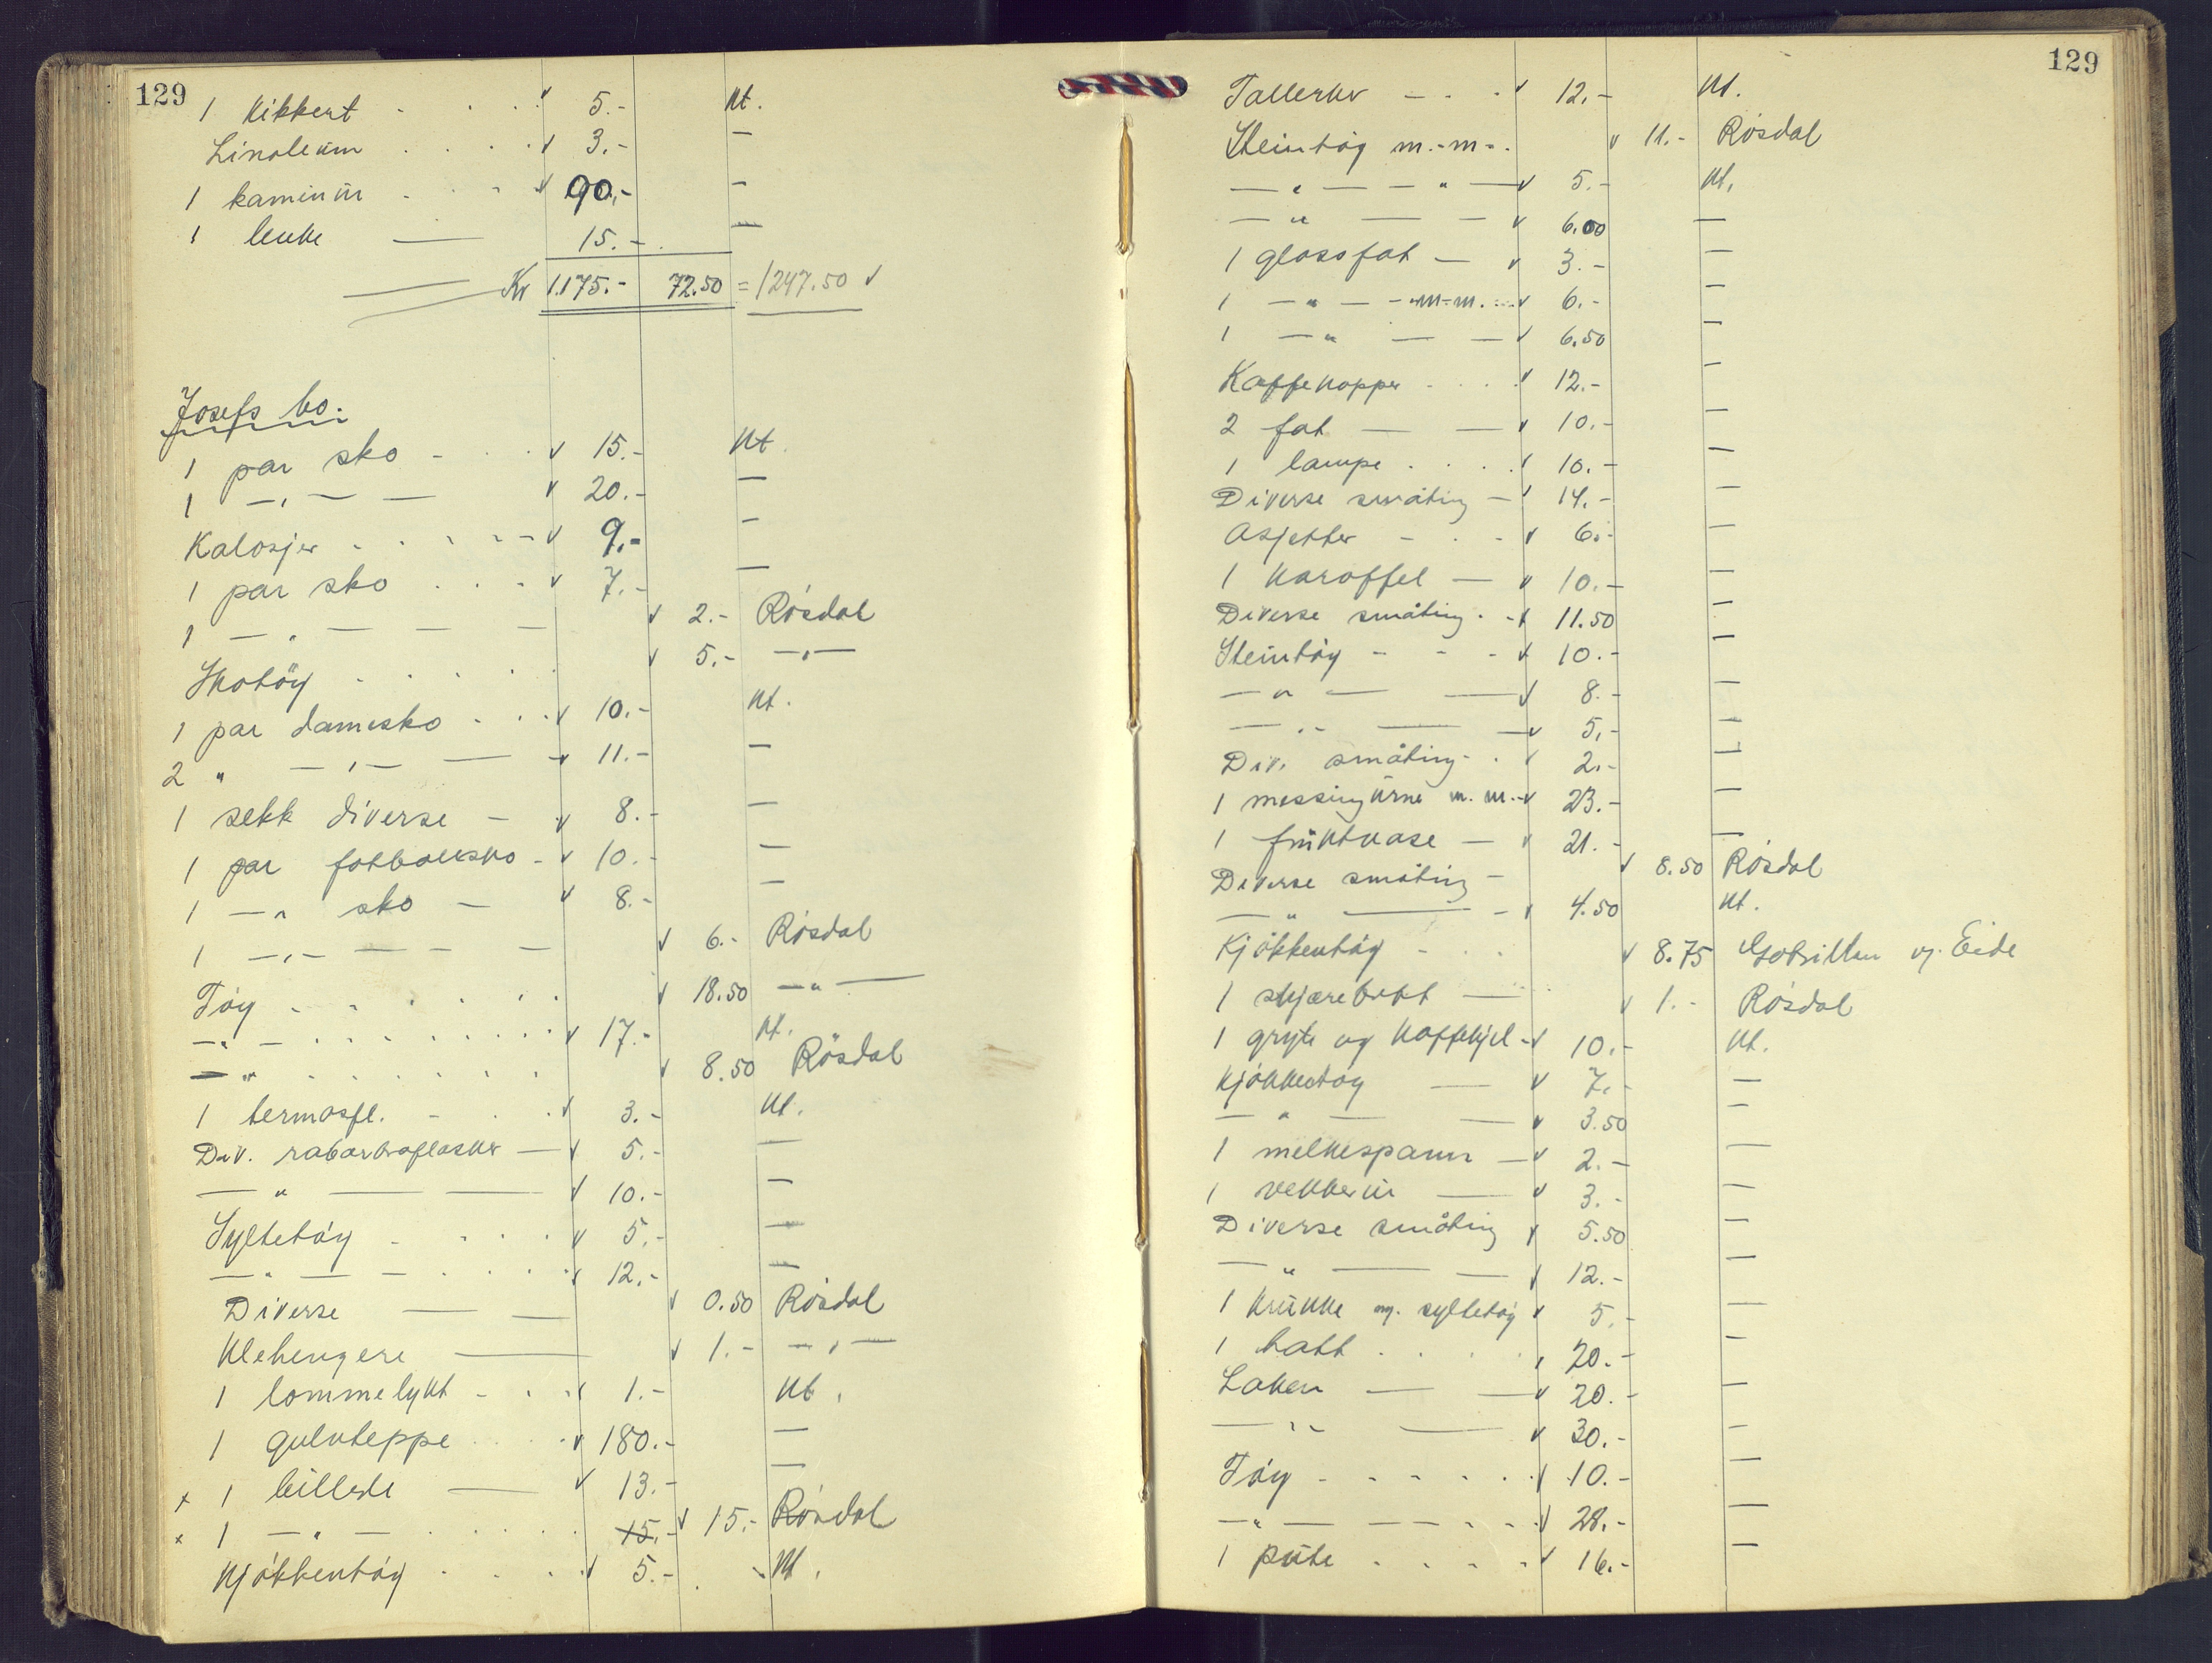 129
1 Kikkert - . . . v 5.- Kt.
Linoleum . . . . v 3.- —
1 kaminur . . - v 90,- —
1 lenke — 15.- —
Kr 1.175.- 72.50 = 1247.50 v
Josefs bo.
1 par sko - . . v 15.- Kt.
1 —„— — v 20.- —
Kalosjer . . . - - v 9.- —
1 par sko . . . - v 7.- —
1 —„— — — v 2.- Rösdal
Skotöy . . . . . v 5.- —„—
1 par damesko . . . v 10.- Kt.
2 " —„— — v 11.- —
1 sekk diverse — . v 8.- —
1 par fotballsko - v 10.- —
1 —„ sko — v 8.- —
1 —„— — — v 6.- Rösdal
Töy - - . . . . v 18.50 —„—
—„— . . . . . . . v 17.- Kt.
—„ . . . . . . . v 8.50 Rösdal
1 termosfl. - . . v 3.- Kt.
Div. rabarbraflasker — v 5.- —
—„— — v 10.- —
Syltetöy - . . . . v 5.- —
—„— — . . . . v 12.- —
Diverse — — v 0.50 Rösdal
Klehengere — v 1.- —„—
1 lommelykt - . . v 1.- Kt.
1 gulvteppe . . . v 180.- —
x 1 billede — v 13.- —
x 1 —„— . . . . . 15.- v 15.- Rösdal
Kjökkentöy . . . . v 5.- Kt.
129
Tallerkn — - . v 12.- Kt.
Steintöy m.-m-. v 11.- Rösdal
—„— — „ — v 5.- Kt.
—„ — — v 6.00 —
1 glassfat — v 3.- —
1 —„— - m-m. v 6.- —
1 —„ — — v 6.50 —
Kaffekopper . . . . v 12.- —
2 fat — — v 10.- —
1 lampe . . . . v 10.- —
Diverse småting — v 14.- —
Asjetter - . - v 6.- —
1 Karaffel — v 10.- —
Diverse småting . - v 11.50 —
Steintöy - - - v 10.- —
—„— — v 8.- —
—„- — — v 5,- —
Div. småting - . v 2.- —
1 messingurne m. m. - v 23.- —
1 fruktvase — v 21.- —
Diverse småting — v 8.50 Rösdal
—„ — - v 4.50 Kt.
Kjökkentöy - . . v 8.75 Eide
1 skjærebrett — v 1.- Rösdal
1 gryte og Kaffekjel - v 10.- Kt.
Kjökkentöy — v 7.- —
—„— — v 3.50 —
1 melkespann — v 2.- —
1 vekkerur — v 3.- —
Diverse småting v 5.50 —
—„— — v 12.- —
1 krukke m. syltetöy v 5.- —
1 hatt . . . . , 20.- —
Laken — — v 20.- —
—„- — v 30.- —
Töy - - - . . . v 10.- —
—„— — - - . v 28.- —
1 pute . . . . . v 16.- —